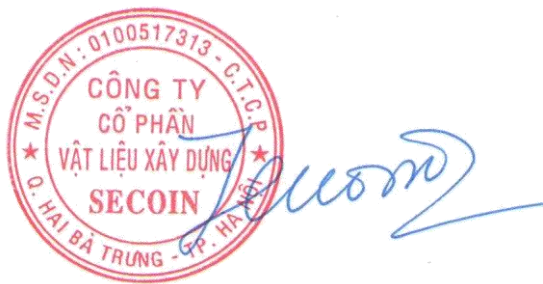 M.S.D.N: 0100517313 - C.T.C.P
CÔNG TY
CỔ PHẦN
VẬT LIỆU XÂY DỰNG
SECOIN
Q. HAI BÀ TRƯNG - TP. HÀ NỘI